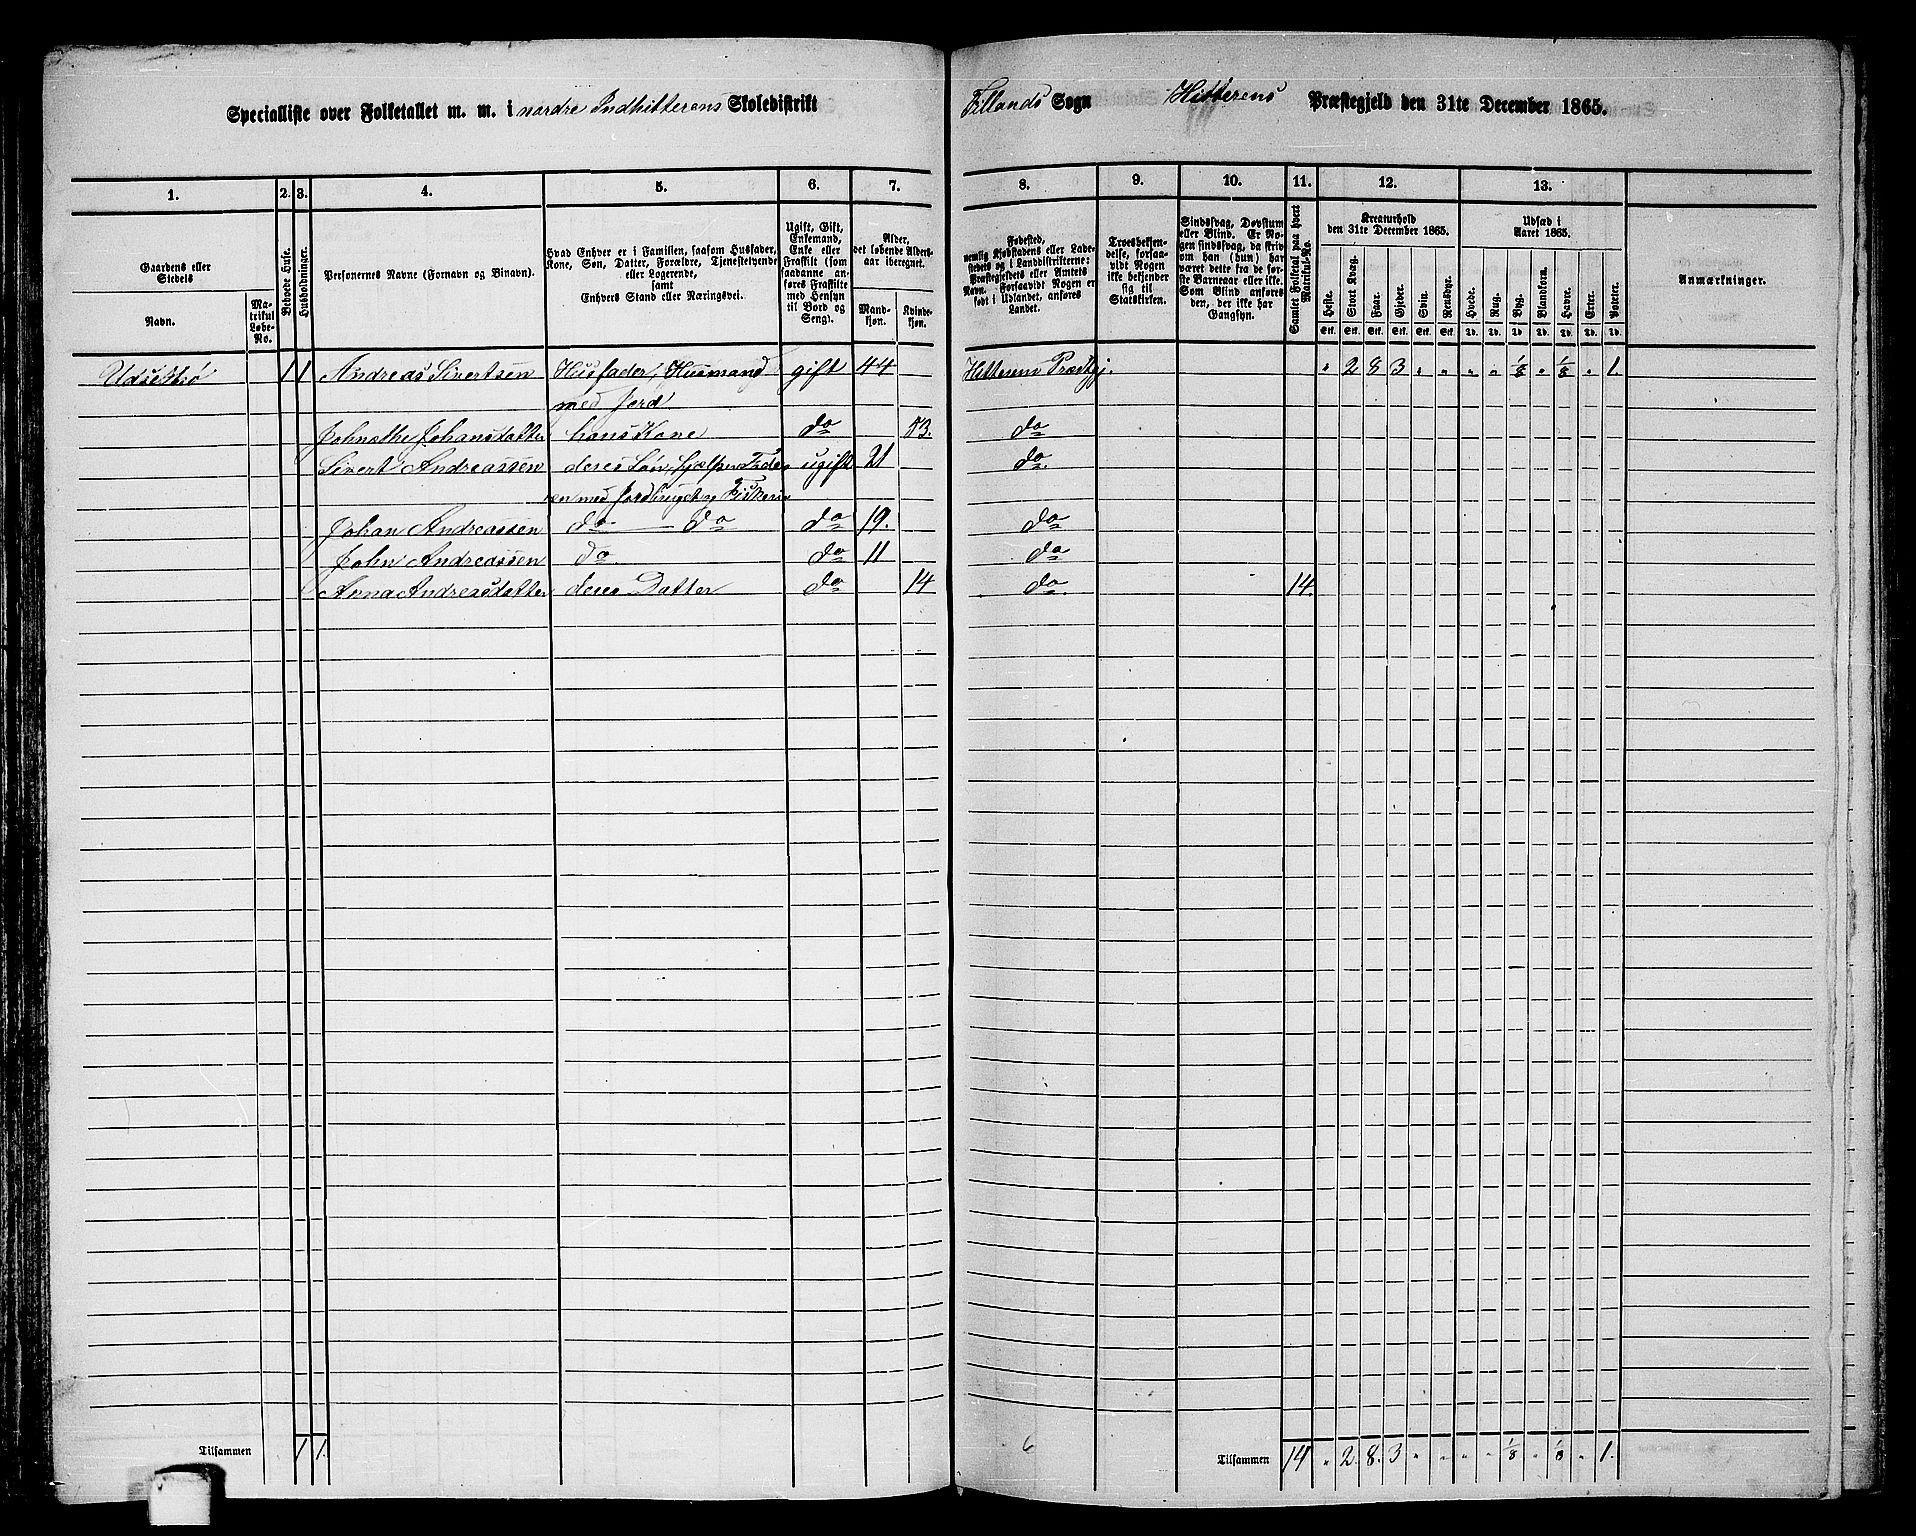 Specialliste over Folketallet m. m. i nordre Indhitterens Skoledistrikt
Fillands Sogn Hitterens Præstegjeld den 31te December 1865.
1. 2. 3. 4. 5. 6. 7. 8. 9. 10. 11. 12. 13.
Gaardens eller Stedets
Navn.
Matrikul Løbe-No.
Beboede Huse.
Husholdninger.
Personernes Navne (Fornavn og Binavn).
Hvad Enhver er i Familien, saasom Husfader, Kone, Søn, Datter, Forældre, Tjenestetyende eller Logerende,
samt
Enhvers Stand eller Næringsvei.
Ugift, Gift, Enkemand, Enke eller Fraskilt (som saadanne anføres Fraskilte med Hensyn til Bord og Seng).
Alder, det løbende Aldersaar iberegnet.
Mandkjøn.
Kvindekjøn.
Fødested, nemlig Kjøbstadens eller Ladestedets og i Landdistrikterne: Præstegjeldets eller Amtets Navn. Forsaavidt Nogen er født i Udlandet, anføres Landet.
Troesbekjendelse, forsaavidt Nogen ikke bekjender sig til Statskirken.
Sindssvag, Døvstum eller Blind. Er Nogen sindssvag, da skrives om han (hun) har været dette fra de første Barneaar eller ikke. Som Blind anføres den, der ikke har Gangsyn.
Samlet Folketal paa hvert Matrikul-No.
Kreaturhold den 31te December 1865.
Heste. Stort Kvæg. Faar. Gjeder. Svin. Rensdyr.
Stk. Stk. Stk. Stk. Stk. Stk.
Udsæd i Aaret 1865.
Hvede. Rug. Byg. Blandkorn. Havre. Erter. Poteter.
Td. Td. Td. Td. Td. Td. Td.
Anmærkninger.
1 1 Andreas Sivertsen Husfader, Husmand gift 44 Hitteren Præstgj. " 2 8 3 " " " " 1/8 " 1/8 " 1.
med Jord
Johansdatter hans Kone do 53. do
Sivert Andreassen deres Søn, hjælper Fade- ugift 21 do.
ren med Jordbruget og Fiskeri
Johan Andreassen do — do do 19. do
John Andreassen do. do 11 do
Anna Andreasdatter deres Datter do 14 do. 14.
Tilsammen 1 1. 6 Tilsammen 14 " 2. 8. 3 " " " " 1/8 " 1/8 " 1.